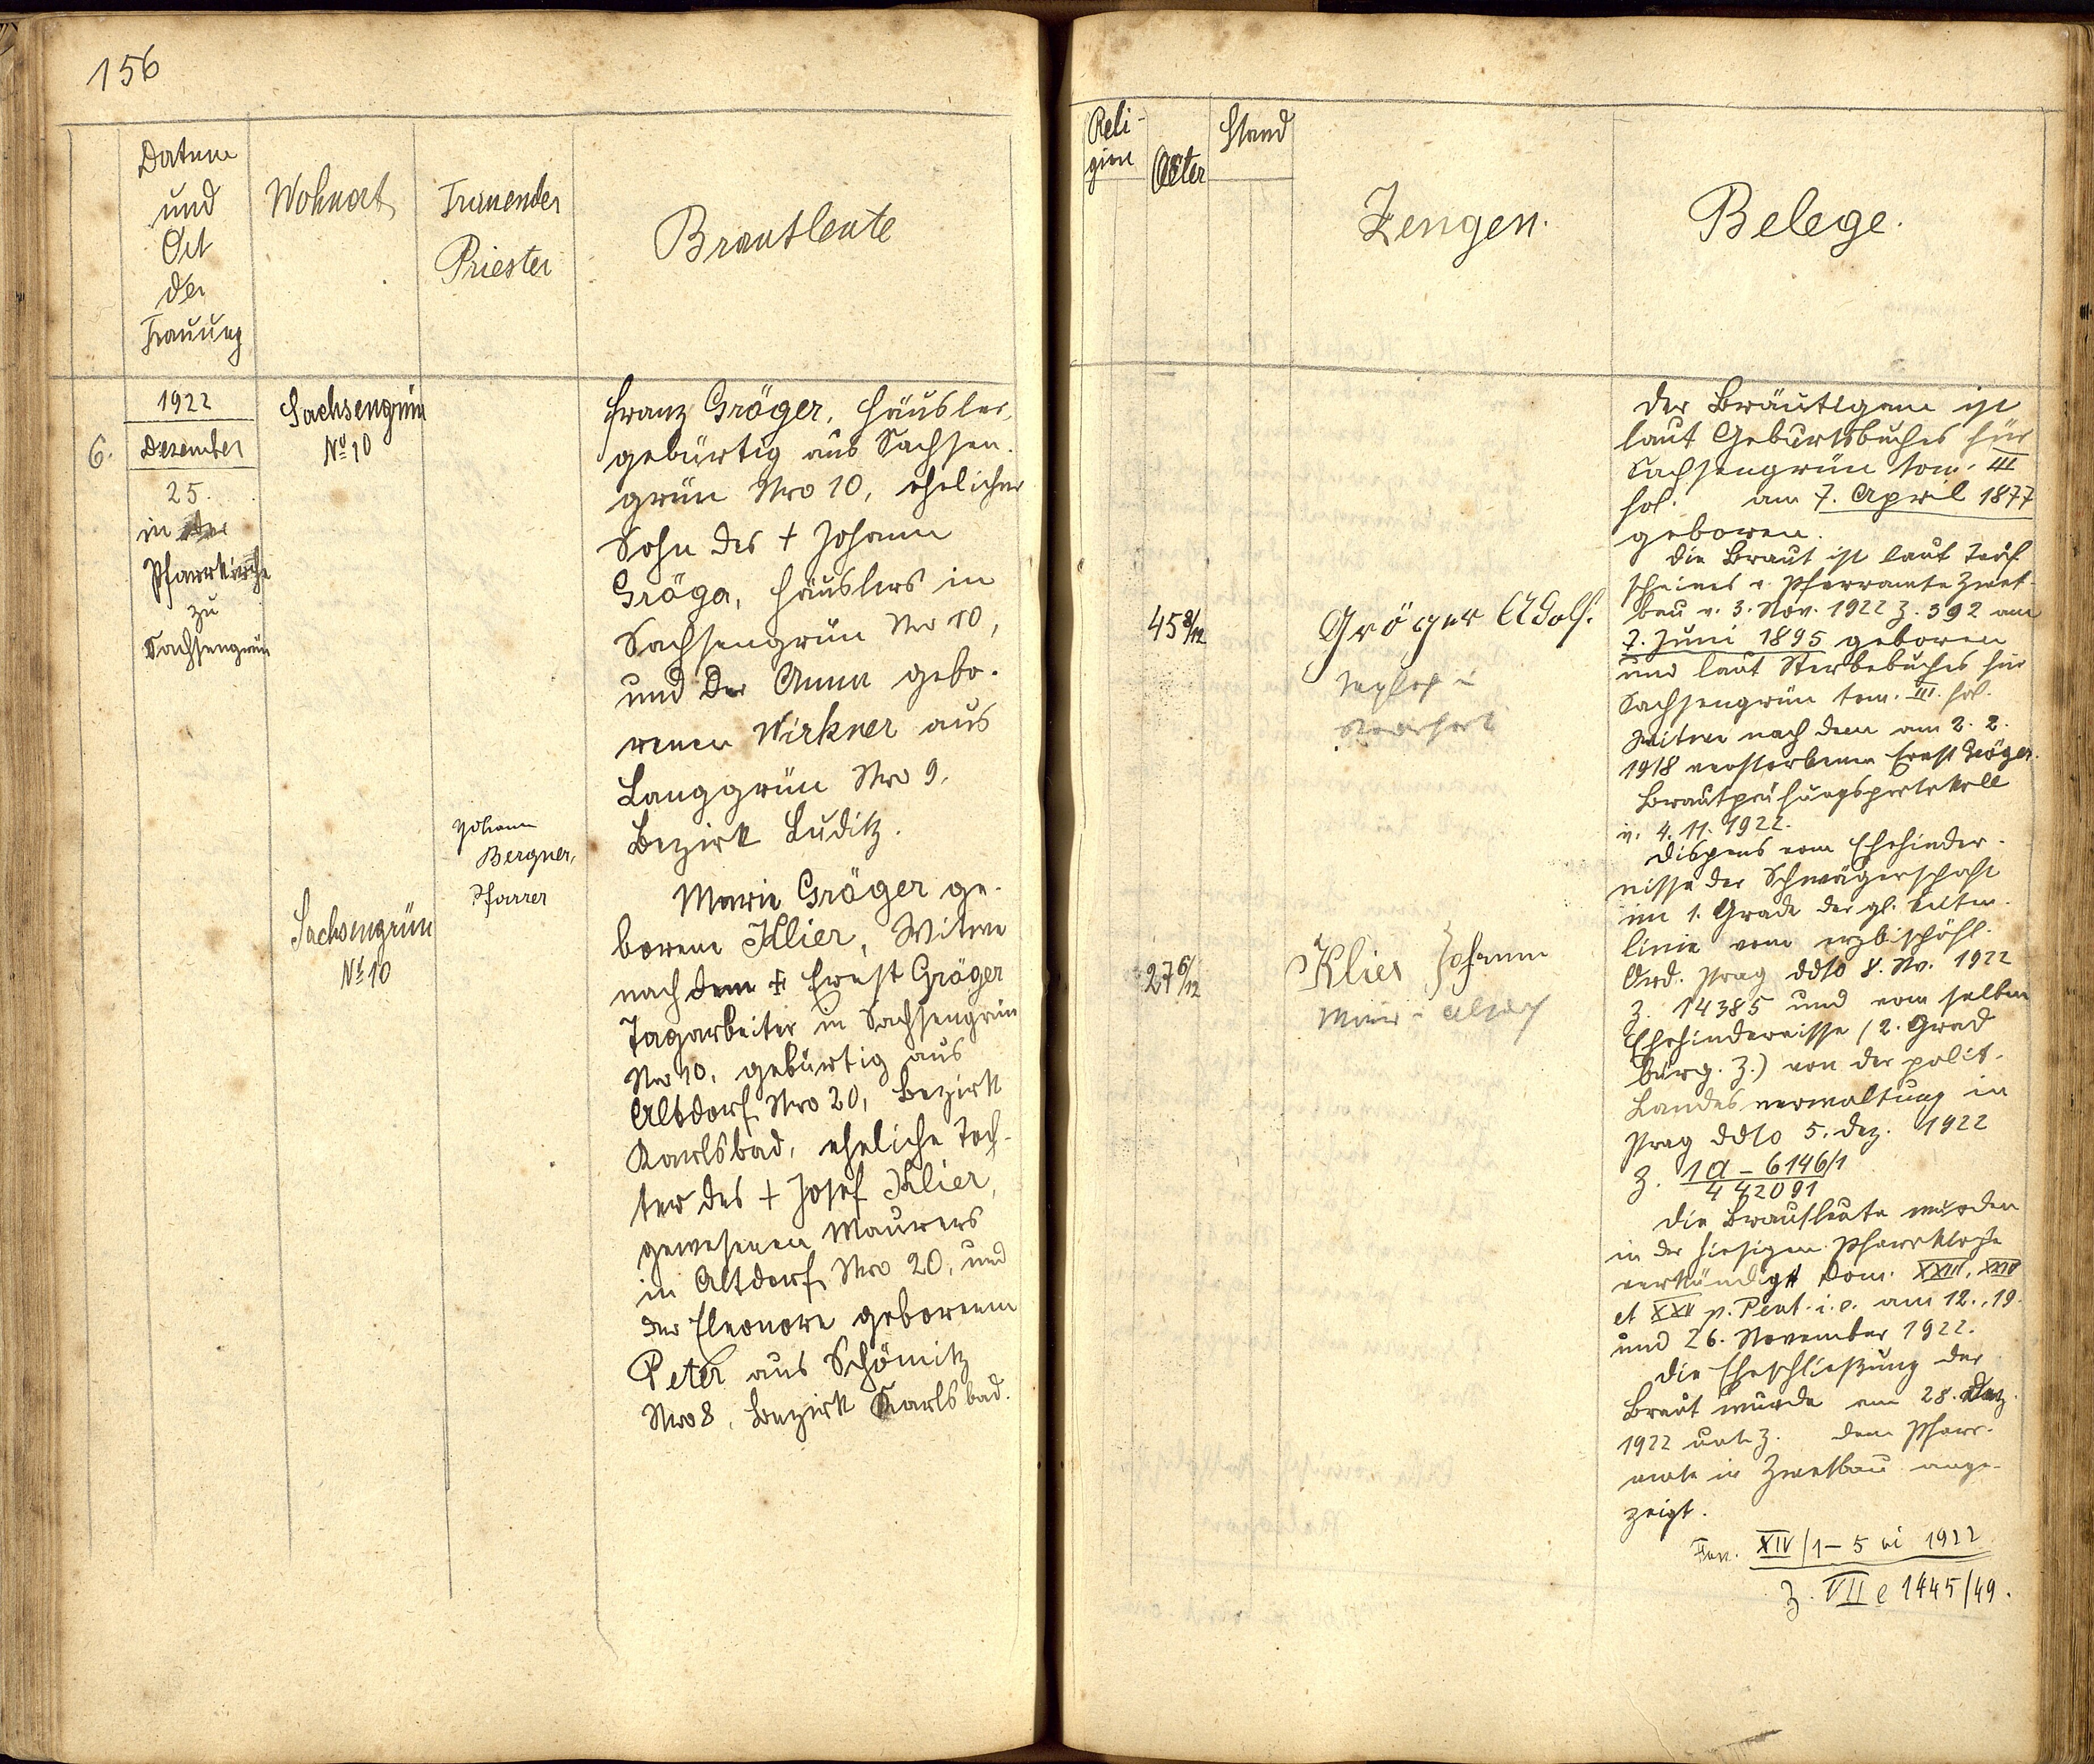 156
Datum
und
Ort
der
Trauung
Wohnort
Trauender
Priester
Brautleute
1922
6.
Dezember
25.
in der
Pfarrkirche
zu
Sachsengrün
Sachsengrün
No 10
Johann
Bergner,
Pfarrer
Sachsengrün
No 10
Franz Gröger, Häusler,
gebürtig aus Sachsen-
grün Nro 10, ehelicher
Sohn des † Johann
Gröger, Häuslers in
Sachsengrün Nro 10,
und der Anna gebo-
renen Wirkner aus
Langgrün Nro 9,
Bezirk Luditz.
Marie Gröger ge-
borene Klier, Witwe
nach dem † Ernst Gröger
Tagarbeiter in Sachsengrün
Nro 10, gebürtig aus
Altdorf Nro 20, Bezirk
Karlsbad, eheliche Toch-
ter des † Josef Klier,
gewesenen Maurers
in Altdorf Nro 20, und
der Eleonore geborenen
Peter aus Schömitz
Nro 8, Bezirk Karlsbad.
Reli-
gion
Alter
Stand
Zeugen.
Belege.
45 8/12
Gröger Adolf.
27 6/12
Klier Johann
Der Bräutigam ist
laut Geburtsbuches für
Sachsengrün tom. III
fol. am 7. April 1877
geboren.
Die Braut ist laut Tauf-
scheines v. Pfarramte Zwet-
bau v. 3. Nov. 1922 Z. 392 am
7. Juni 1895 geboren
und laut Sterbebuches für
Sachsengrün tom. III. fol.
Witwe nach dem am 2. 2.
1918 verstorbenen Ernst Gröger.
Brautprüfungsprotokoll
v. 4. 11. 1922.
Dispens vom Ehehinder-
nisse der Schwägerschaft
im 1. Grade der gl. Seiten-
linie vom erzbischöfl.
Ord. Prag ddto 8. Nv. 1922
Z. 14385 und vom selben
Ehehindernisse (2. Grad
bürg. Z.) von der polit.
Landesverwaltung in
Prag ddto 5. Dez. 1922
Z. 1a - 6146/1
442091
Die Brautleute wurden
in der hiesigen Pfarrkirche
verkündigt Dom. XXIII, XXIV
et XXV p. Pent. i. e. am 12., 19.
und 26. November 1922.
Die Eheschließung der
Braut wurde am 28. Dez.
1922 unt. Z. dem Pfarr-
amte in Zwetbau ange-
zeigt.
XIV/1-5 1922
Z. VII e 1445/49.